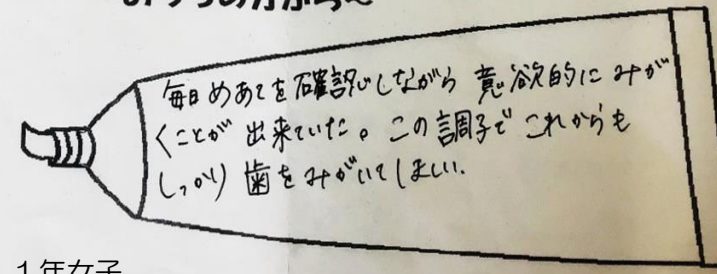 毎日めあてを確認しながら 意欲的にみが
くことが 出来ていた。この調子で これからも
しっかり 歯をみがいてほしい.
1年女子